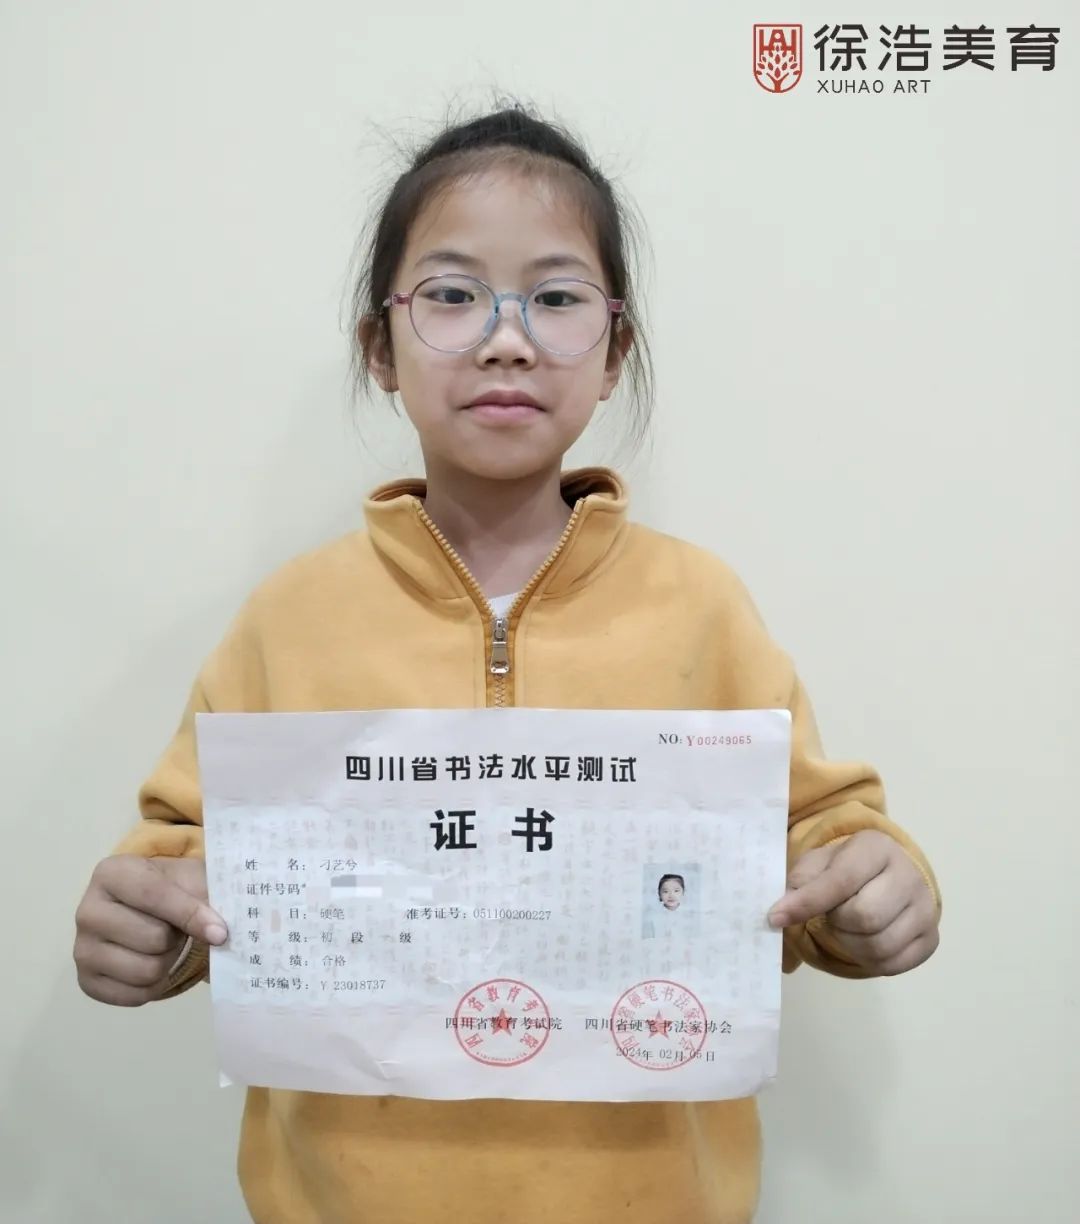 徐浩美育
XUHAO ART
NO: Y00249065
四川省书法水平测试
证书
姓 名：刁艺兮
证件号码
科 目：硬笔 准考证号：051100200227
等 级：初 段 一 级
成 绩：合格
证书编号：Y 23018737
四川省教育考试院 四川省硬笔书法家协会
2024年 02月 05日